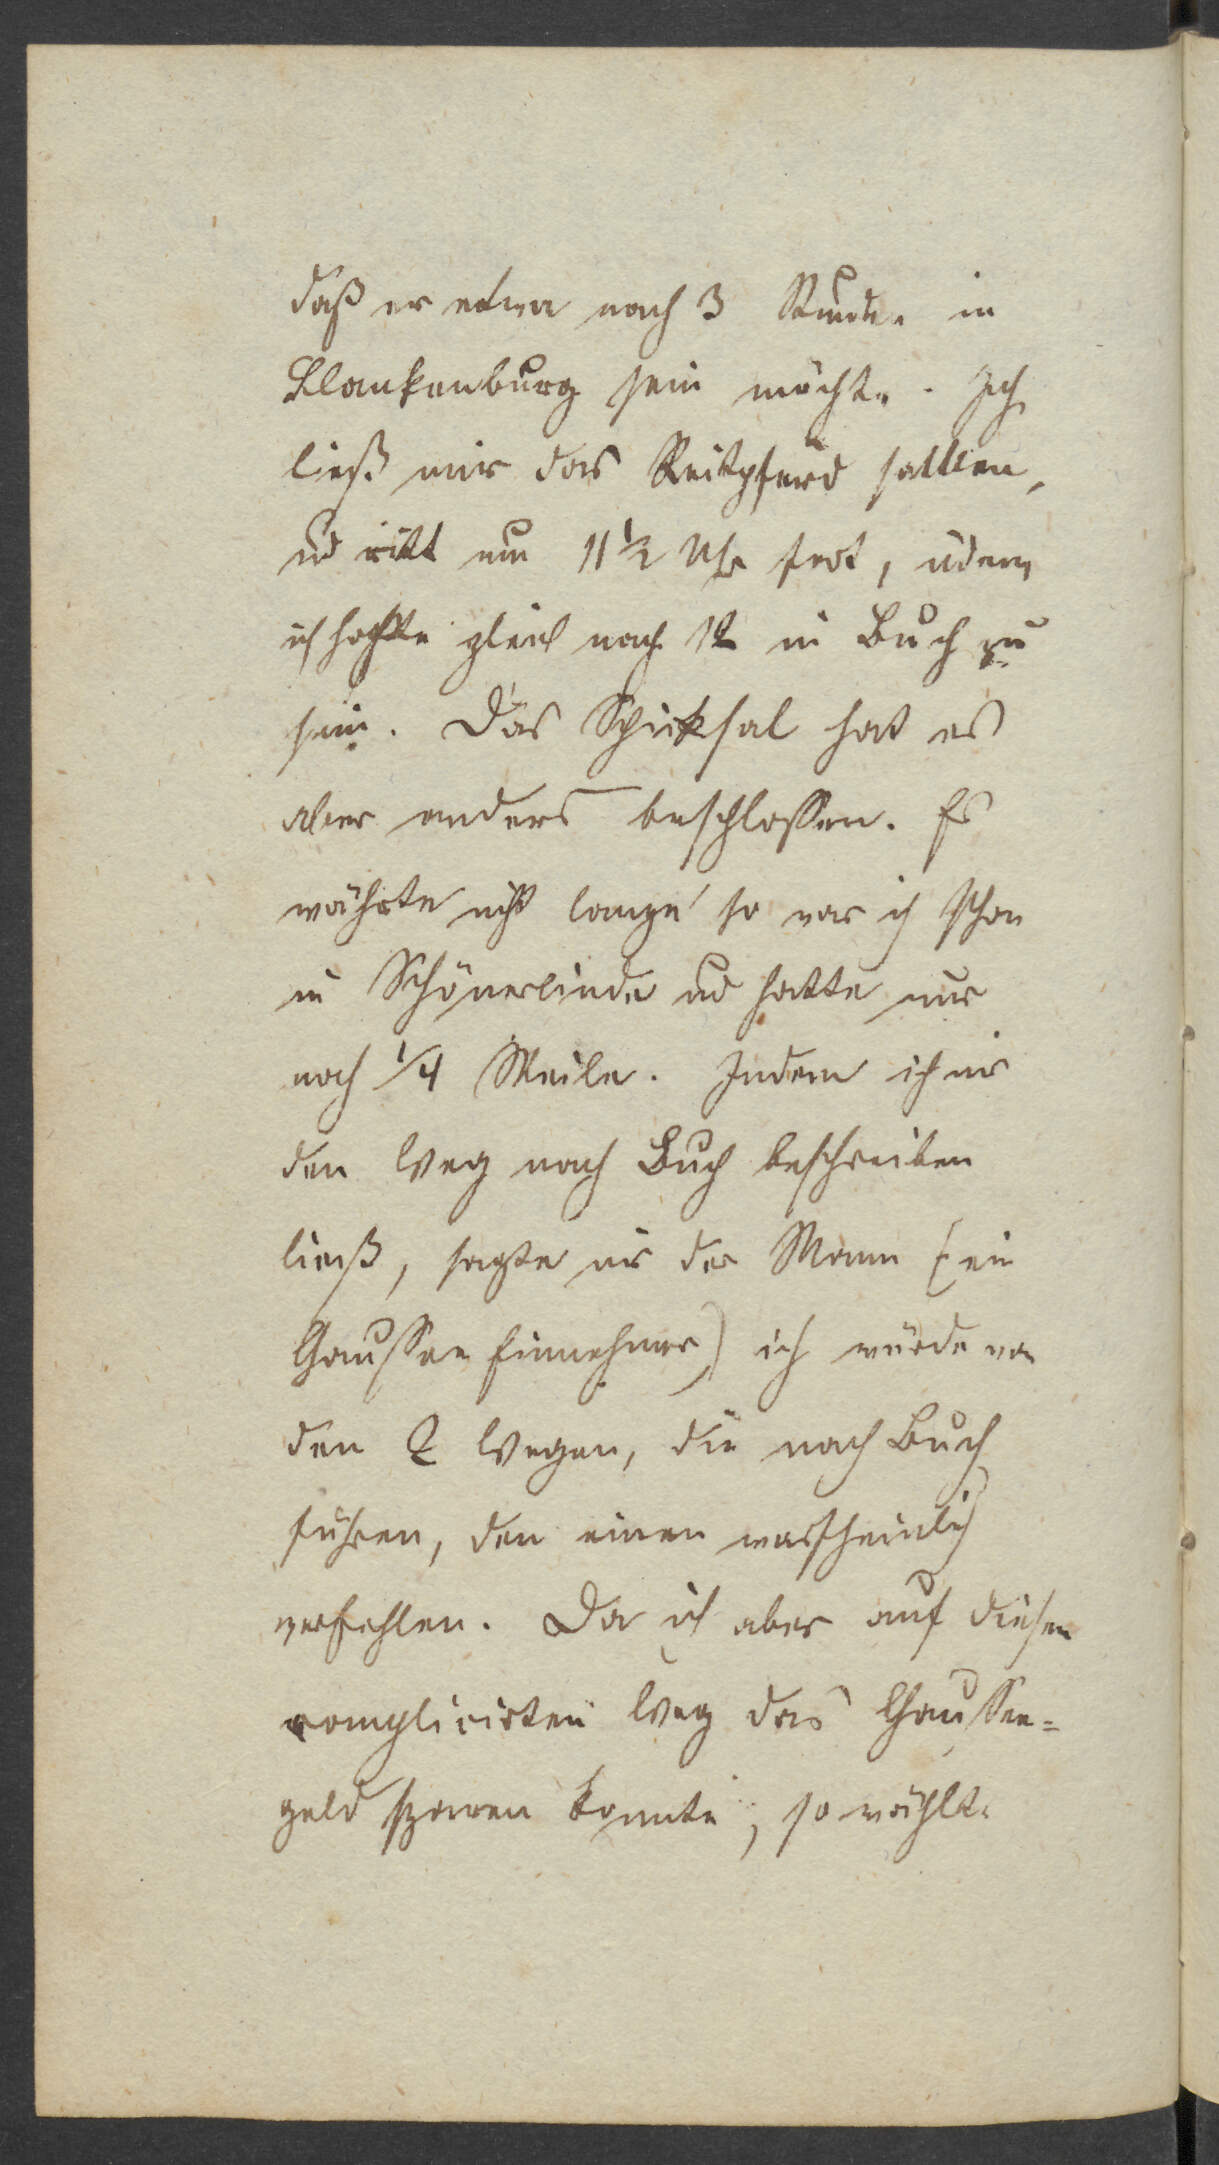 daß er etwa nach 3 Stunden in
Blankenburg sein möchte. Ich
ließ mir das Reitpferd sattlen,
ud ritt um 11 1/2 Uhr fort, indem
ich hoffte gleich nach 12 in Buch zu
sein. Das Schicksal hat es
aber anders beschlossen. Es
währte nicht lange so war ich schon
in Schönerlinde ud hatte nur
noch 1/4 Meile. Indem ich mir
den Weg nach Buch beschreiben
ließ, sagte mir der Mann (ein
Chaussee Einnehmer) ich würde von
den 2 Wegen, die nach Buch
führen, den einen warscheinlich
verfehlen. Da ich aber auf diesen
complicirten Weg das Chaussee=
geld sparen konnte, so wählte